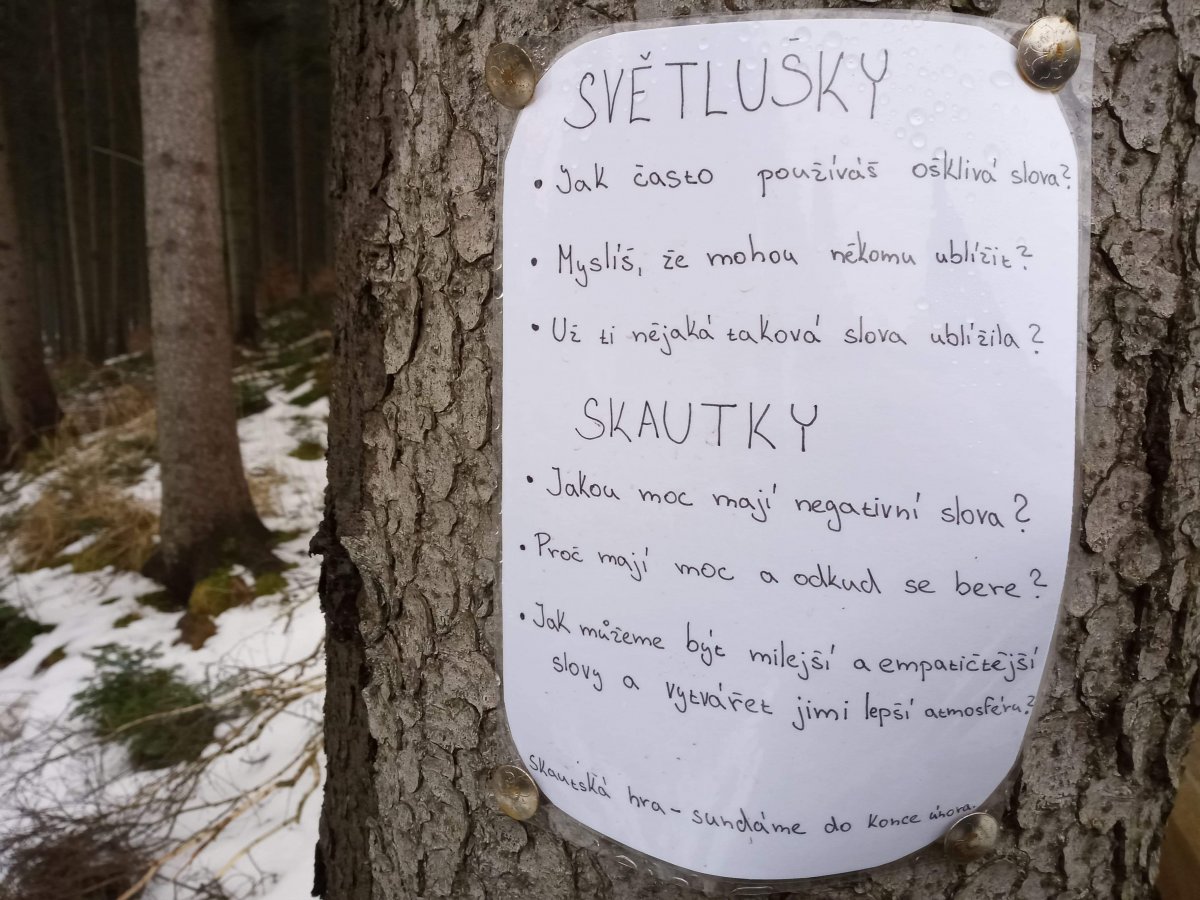 SVĚTLUŠKY
• Jak často používáš ošklivá slova?
• Myslíš, že mohou někomu ublížit?
• Už ti nějaká taková slova ublížila?
SKAUTKY
• Jakou moc mají negativní slova?
• Proč mají moc a odkud se bere?
• Jak můžeme být milejší a empatičtější
slovy a vytvářet jimi lepší atmosféru?
Skautská hra - sundáme do konce února.